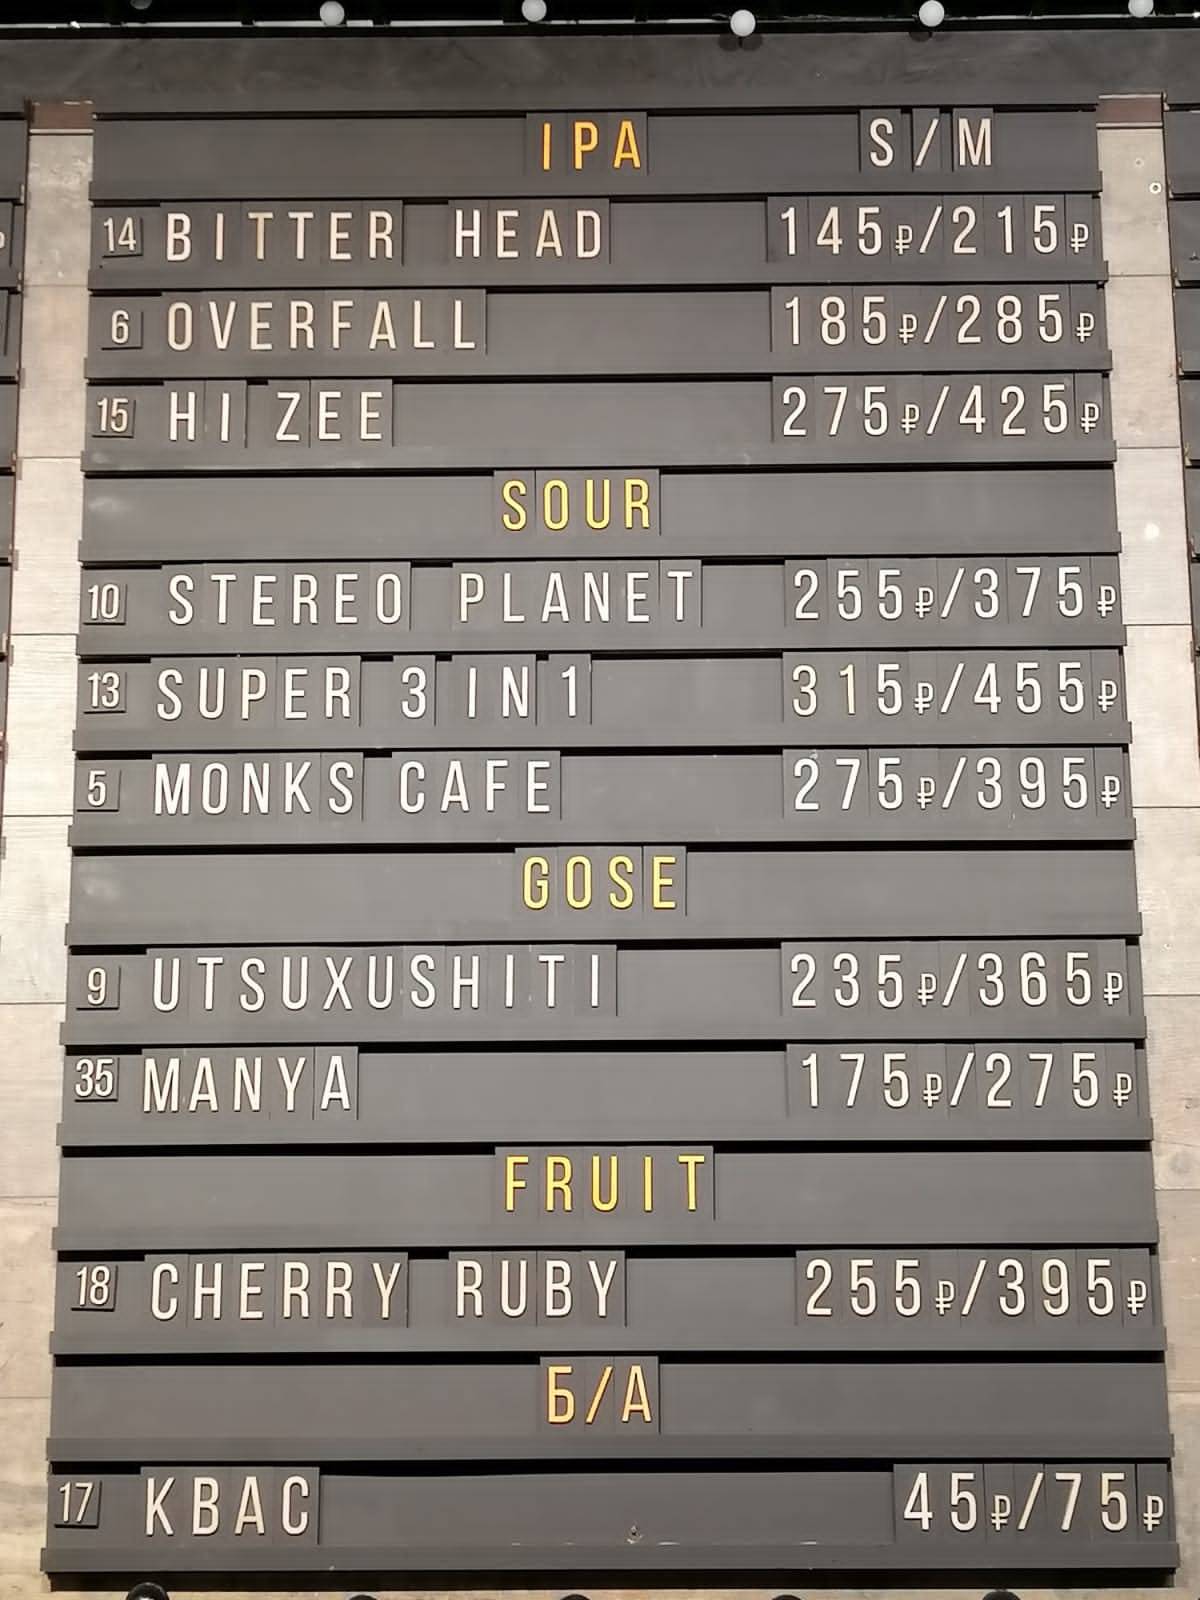 IPA S/M
14 BITTER HEAD 145₽/215₽
6 OVERFALL 185₽/285₽
15 HI ZEE 275₽/425₽
SOUR
10 STEREO PLANET 255₽/375₽
13 SUPER 3 IN 1 315₽/455₽
5 MONKS CAFE 275₽/395₽
GOSE
9 UTSUXUSHITI 235₽/365₽
35 MANYA 175₽/275₽
FRUIT
18 CHERRY RUBY 255₽/395₽
Б/А
17 КВАС 45₽/75₽